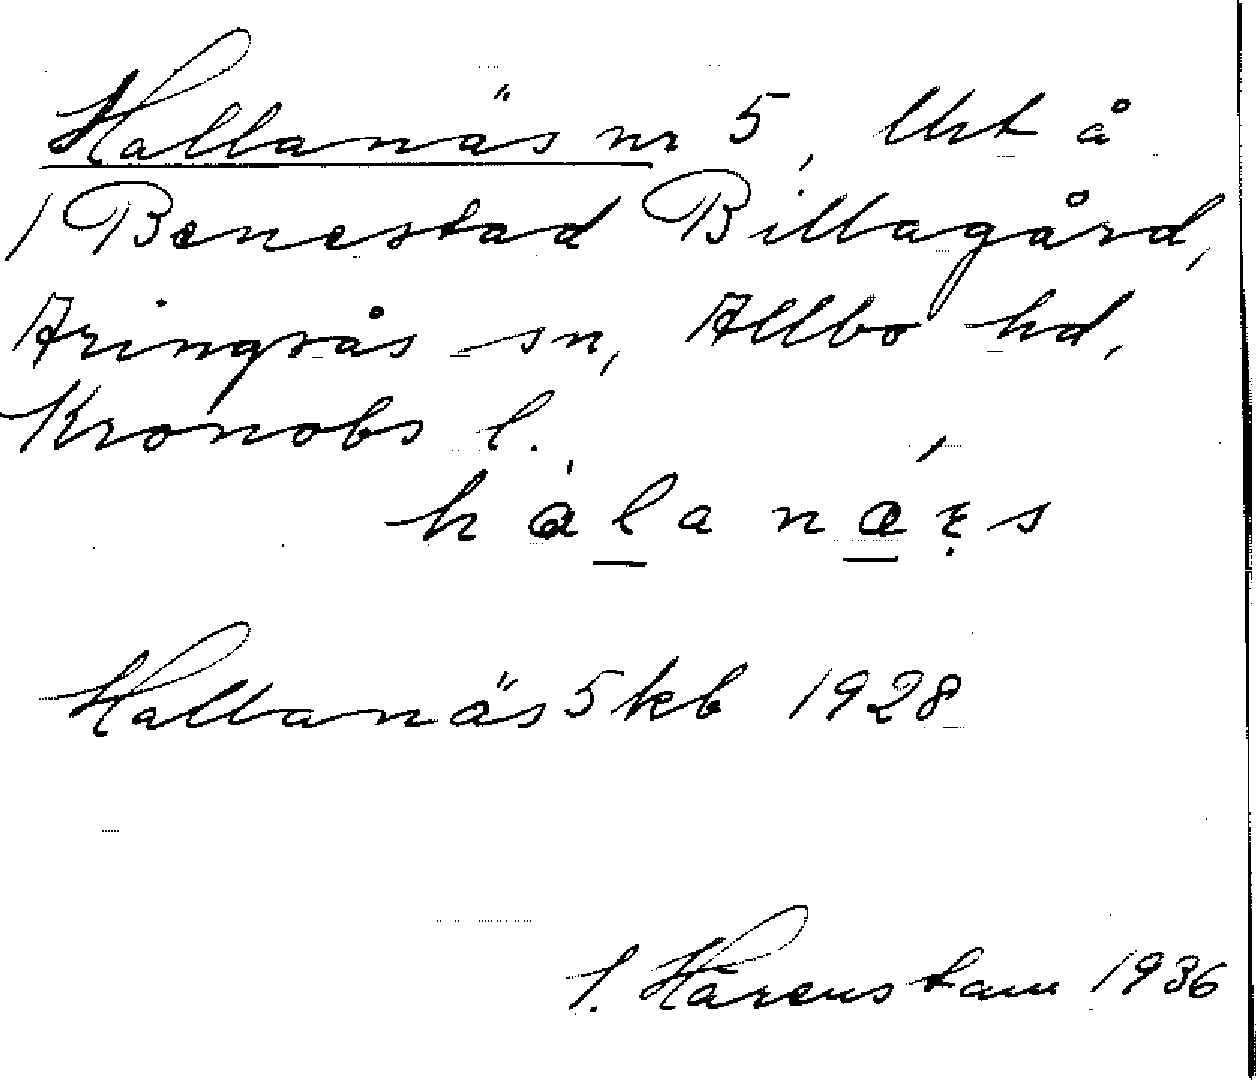 Hallanäs nr 5, Uht å
1 Benestad Billagård,
Aringsås sn, Allbo hd,
Kronobs l.
Hallanäs 5 kb 1928
S. Härenstam 1936